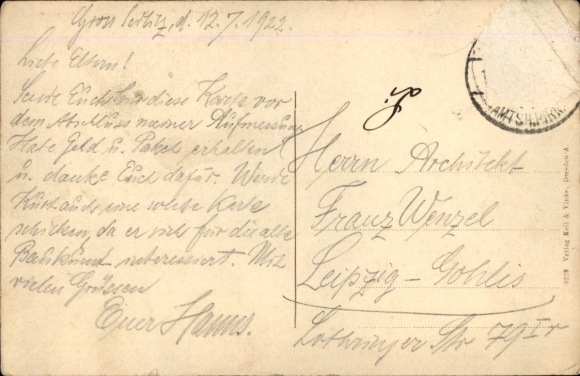 Gross Sedlitz, d. 12.7.1922.
Liebe Eltern!
Sende Euch hier diese Karte vor
dem Abschluss meiner Aufmessung
Habe Geld u. Paket erhalten
u. danke Euch dafür. Werde
Kurt auch eine solche Karte
schicken, da er sich für die alte
Baukunst interessiert. Mit
vielen Grüssen
Euer Hanns.
AMTSH. PIRN.
Herrn Architekt
Franz Wenzel
Leipzig-Gohlis
Lothringer Str 79 I r
Verlag Kell & Vicke, Dresden-A.